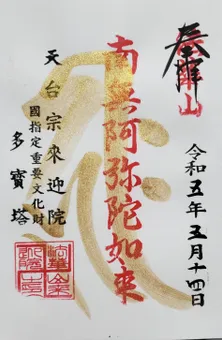 奉拝
令和五年五月十四日
南无阿弥陀如来
天台宗來迎院
國指定重要文化財
多寶塔